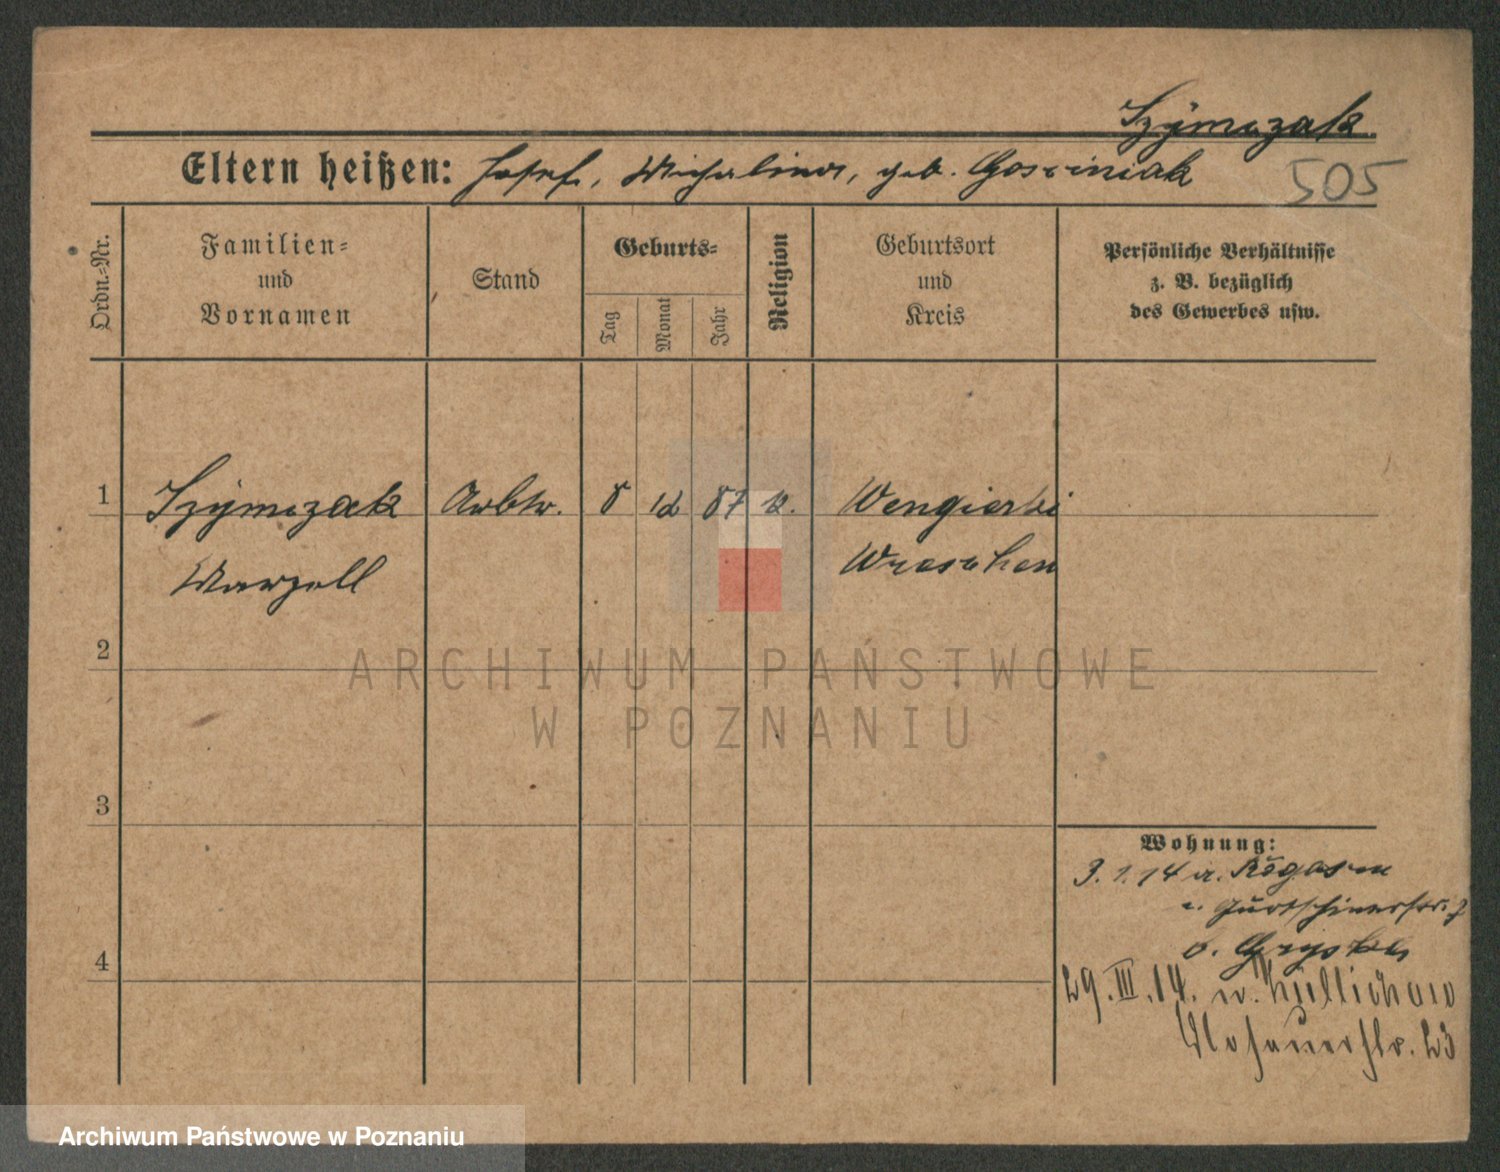 Szymczak
Eltern heißen: Josef, Michalina, geb. Gosciniak
505
Ordn.-Nr.
Familien-
und
Vornamen
Stand
Geburts-
Tag
Monat
Jahr
Religion
Geburtsort
und
Kreis
Persönliche Verhältnisse
z. B. bezüglich
des Gewerbes usw.
1
Szymczak Arbtr. 8 12 87 k. Wengierki
Marzell Wreschen
2
ARCHIWUM PAŃSTWOWE
W POZNANIU
3
Wohnung:
3.1.14 a. Rogasen
Gurtschinerstr. 7
b.
4
29.III.14. n. Züllichau
23
Archiwum Państwowe w Poznaniu